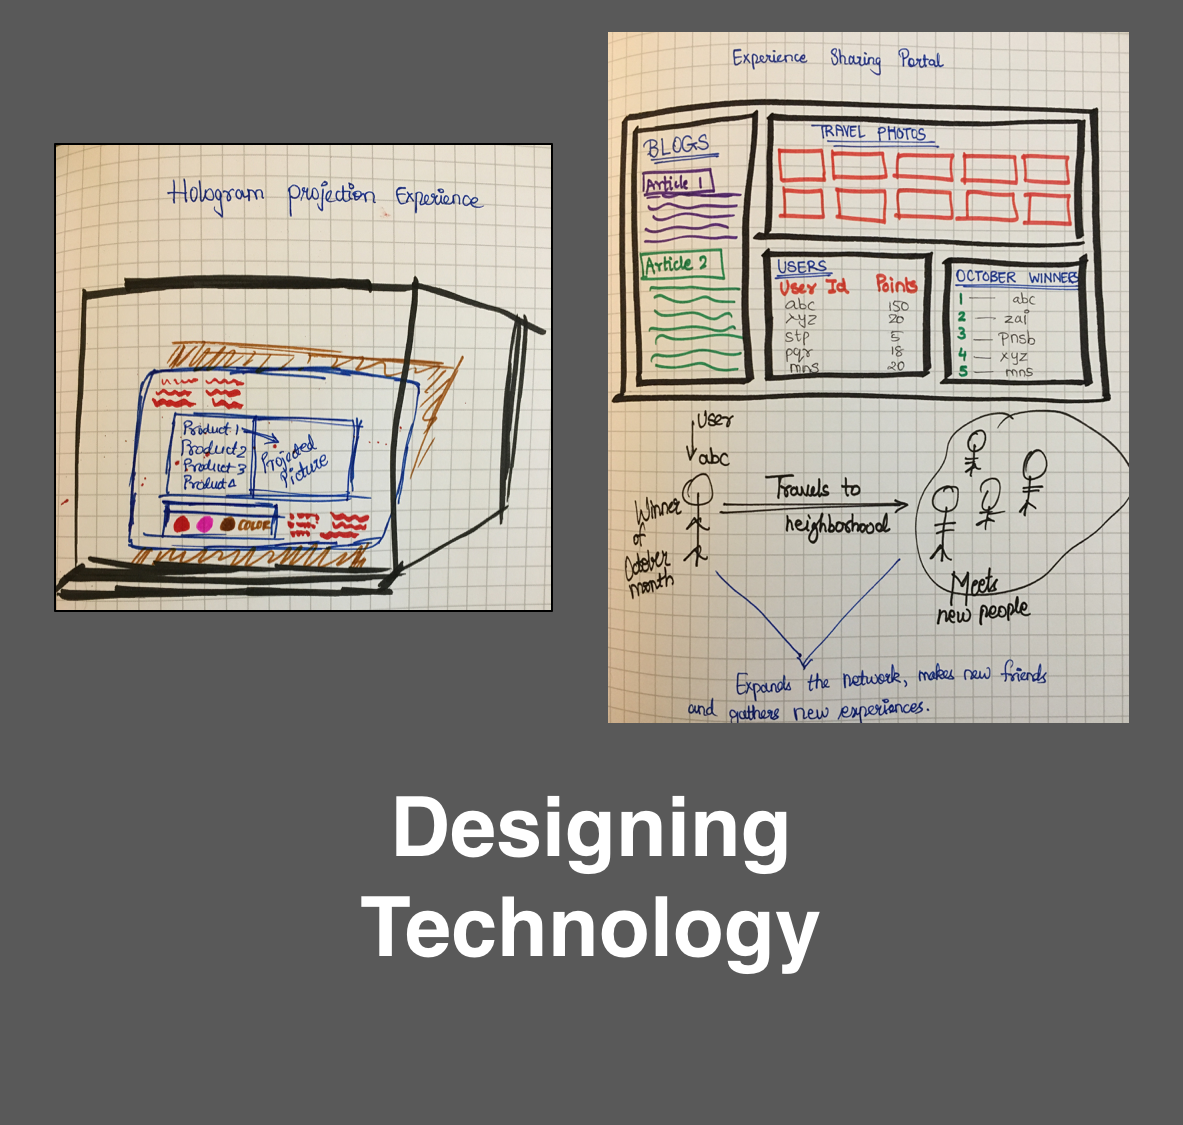 Hologram projection Experience
Product 1
Product 2
Product 3
Product 4
Projected
Picture
COLOR
Experience Sharing Portal
BLOGS
Article 1
Article 2
TRAVEL PHOTOS
USERS
User Id Points
abc 150
xyz 20
stp 5
pqr 18
mns 20
OCTOBER WINNERS
1 — abc
2 — zai
3 — pnsb
4 — xyz
5 — mns
User
abc
Winner
of
October
month
Travels to
neighborhood
Meets
new people
Expands the network, makes new friends
and gathers new experiences.
Designing
Technology